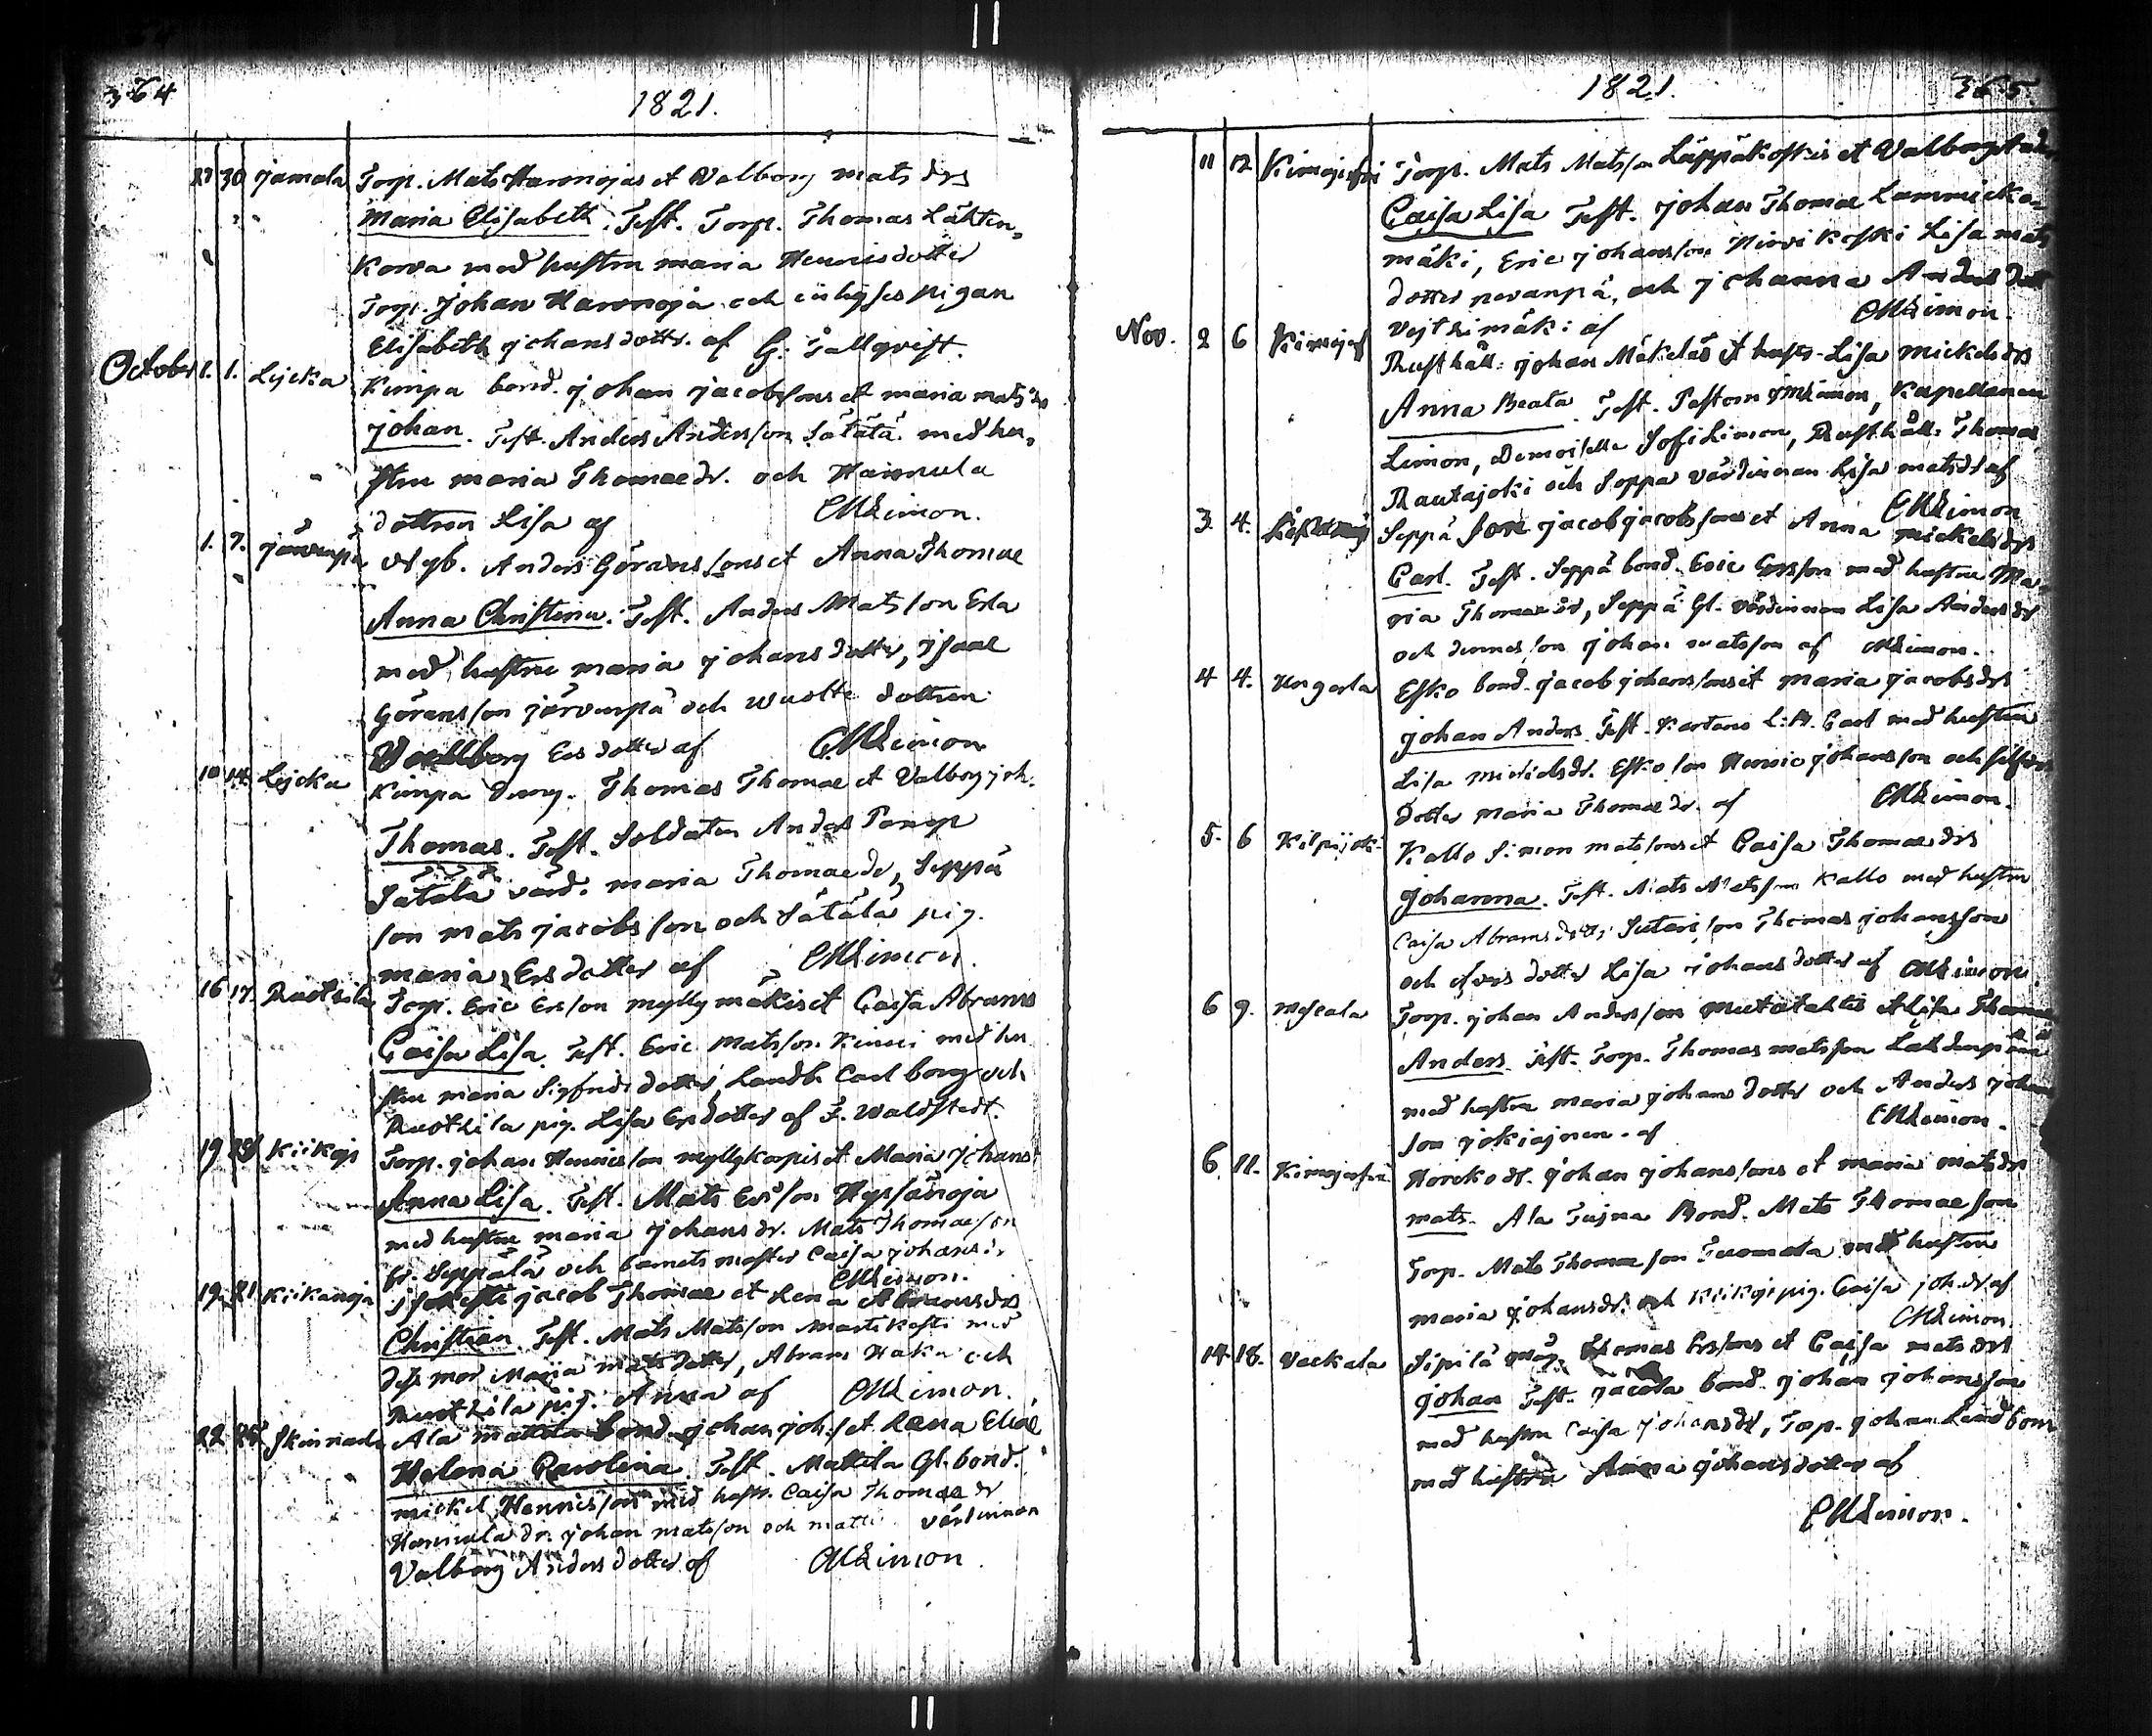 364
1821.
27 30 Jamala Torp. Mats Haronojas et Valborg mats drs
Maria Elisabeth. Test. Torp. Thomas Lähten-
korva med hustru maria Henricsdotter
Torp. Johan Haronoja och inhyses pigan
Elisabeth johansdotter af G. Tallqvist.
October 1. 1. Lejcka Kimpa bond. johan jacobssons et maria matsdr
johan. Test. Anders Andersson Sätälä med hu-
stru maria Thomaedr. och Hannula
dottren Lisa af CMLimon.
1. 7. järvenpä Nyb. Anders Göranssons et Anna Thomae
Anna Christina. Test. Anders Matsson Erla
med hustru maria johansdotter, Isaac
Göransson järvenpä och wuolte dottren
Vallborg Ersdotter af CMLimon
10 14. Lejcka Kimpa Thomas Thomae et Valborg joh.
Thomas. Test. Soldaten Anders
Sätälä värd. maria Thomaedr, Seppä
son mats jacobsson och Sätälä pig.
maria Ersdotter af CMLimon.
16 17. Ruotsila Torp. Eric Ersson myllymäkis et Caisa Abrams
Caisa Lisa. Test. Eric Matsson Kinni med hu
stru maria Sigfridsdotter, Landb. Carl borg och
Ruotsila pig. Lisa Ersdotter af F. Waldstedt.
19 Kiikoja Torp. johan Henricsson myllykorpis et Maria johans
Anna Lisa. Test. Mats Ersson Hyssänoja
med hustru maria johansdr. Mats Thomaeson
fr. Seppälä och barnets moster Caisa johansdr
CMLimon.
19. 21 Kiikanoja jacob Thomae et Lena Abramsdrs
Christian Test. Mats Matsson Martikoski med
dess mor Maria matsdotter, Abram Haka och
Ruotsila pig. Anna af CMLimon.
22 Skinnala Ala mattila bond. johan joh. s et Lena Eliae
Helena Carolina. Test. Mattila Gl. bond.
mickel Henricsson med hustr. Caisa Thomaedr
Hannula dr. johan matsson och matti värdinnan
Valborg Andersdotter af CMLimon.
1821. 365.
11 12 Kimojerfvi Torp. Mats Matsson Läppäkoskis et Valborg
Caisa Lisa Test. johan Thomae Lammicko-
mäki, Eric johansson Hirvikoski Lisa mats
dotter peranpä, och johanna Anders dott
Vejtsimäki af CMLimon.
Nov. 2 6 Kimojerf Rusthåll: johan Mäkeläs et hustr. Lisa mickelsdrs
Anna Beata. Test. Pastorn CMLimon, Kapellanen
Limon, Demoiselle Sofi Limon, Rusthåll. Thomas
Rautajoki och Soppa värdinnan Lisa matsdr af
CMLimon
3. 4. Seppä son jacob jacobssons et Anna mickelsdrs
Carl. Test. Seppä bond. Eric Ersson med hustru Ma-
ria Thomaedr, Seppä Gl. värdinnan Lisa Andersdr
och dennes son johan matsson af CMLimon.
4 4. Ungerla Esko bond. jacob johanssons et maria jacobsdrs
johan Anders. Test. Kartano L. Carl med hustru
Lisa mickelsdr. Esko son Henric johansson och
dotter maria Thomaedr. af CMLimon.
5. 6 Kilpijoki Kallo Simon matssons et Caisa Thomaedrs
johanna. Test. Mats Matsson Kallo med hustru
Caisa Abramsdotter, Sutari son Thomas johansson
och dotter Lisa johansdotter af CMLimon
6 9. Torp. johan Andersson et Lisa Thomae
Anders Test. Torp. Thomas matsson
med hustru maria johansdotter och Anders johans
son jokiajnen. af CMLimon.
6. 11. Kimojerfvi dr. johan johanssons et maria matsdrs
mats. Ala Tujna Bond. Mats Thomaeson
Torp. Mats Thomaeson Tuomala med hustru
maria johansdr. och Kiikoj pig. Caisa joh.dr af
CMLimon.
14. 18. Vackala Sipilä måg. Thomas Erssons et Caisa mats drs
johan Test. jacola bond. johan johansson
med hustru Caisa johansdr, Torp. johan Lindbom
med hustru Anna johansdotter af
CMLimon.